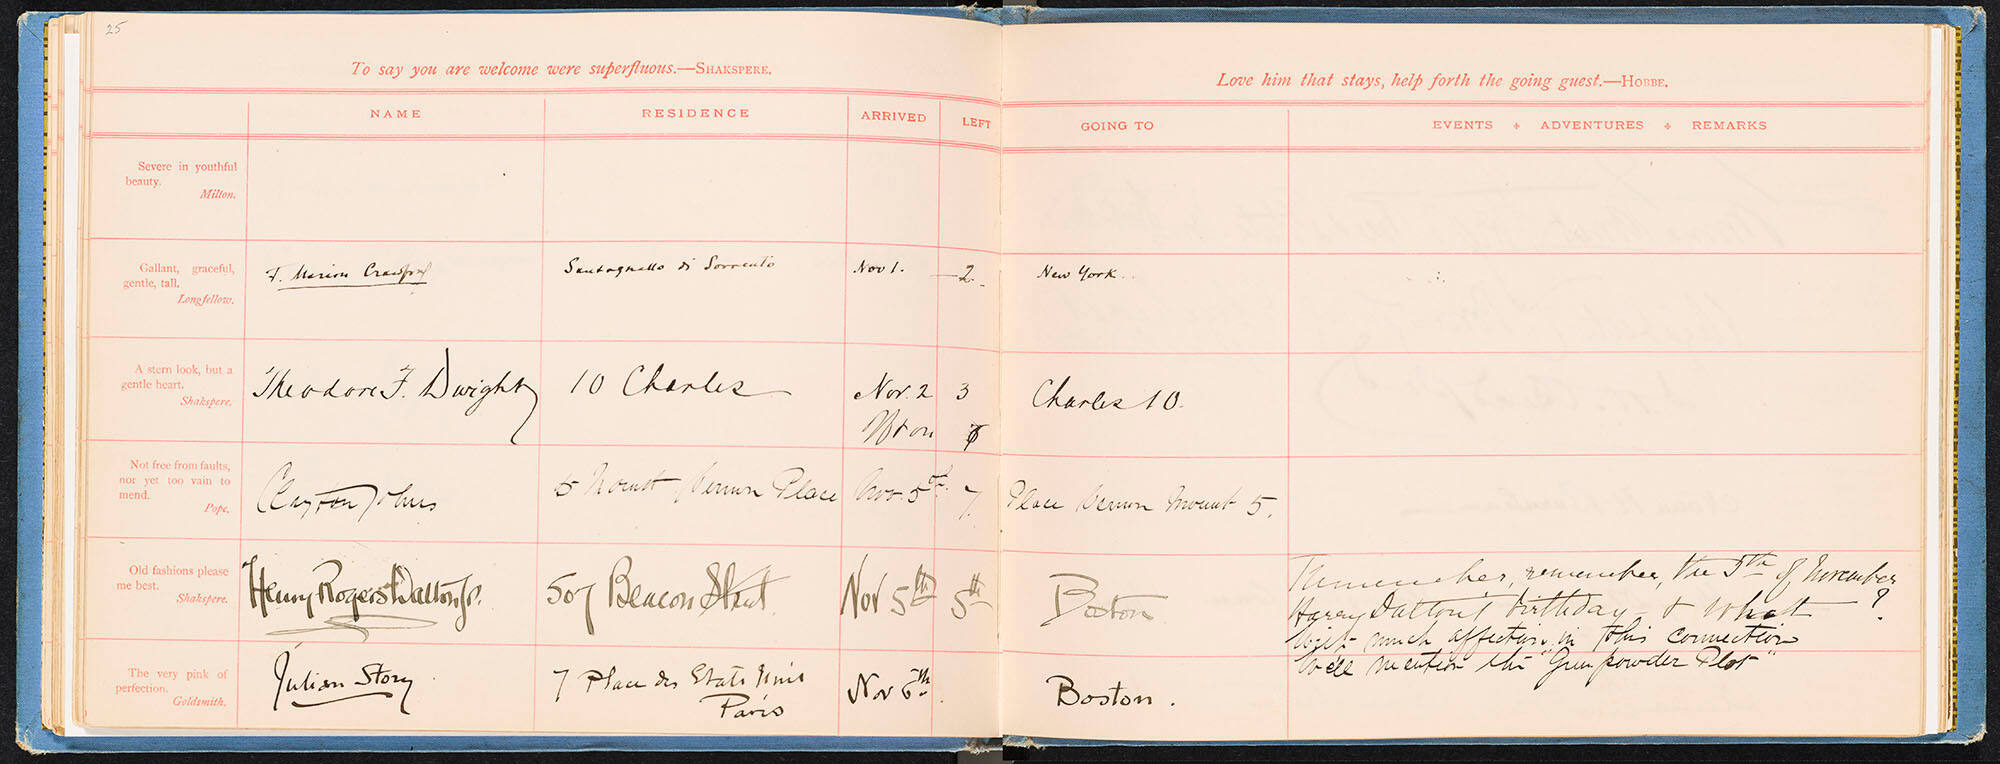 25
To say you are welcome were superfluous.—SHAKSPERE.
Love him that stays, help forth the going guest.—HOBBE.
NAME
RESIDENCE
ARRIVED
LEFT
GOING TO
EVENTS + ADVENTURES + REMARKS
Severe in youthful
beauty.
Milton.
Gallant, graceful,
gentle, tall.
Longfellow.
F. Marion Crawford
Santagnello di Sorrento
Nov 1.
— 2.
New York.
A stern look, but a
gentle heart.
Shakspere.
Theodore F. Dwight
10 Charles
Nov. 2
3
Charles 10.
7
Not free from faults,
nor yet too vain to
mend.
Pope.
Clayton Johns
5 Mount Vernon Place
Nov. 5
7.
Place Vernon Mount 5.
Old fashions please
me best.
Shakspere.
Henry Rogers Dalton Jr.
507 Beacon Street
Nov 5th
5th
Boston
Remember, remember, the 5th of November
Harry Dalton's birthday — & What ?
With much affection, in this connection
We'll mention the "Gunpowder Plot"
The very pink of
perfection.
Goldsmith.
Julian Story
7 Place des Etats Unis
Paris
Nov 6th.
Boston.